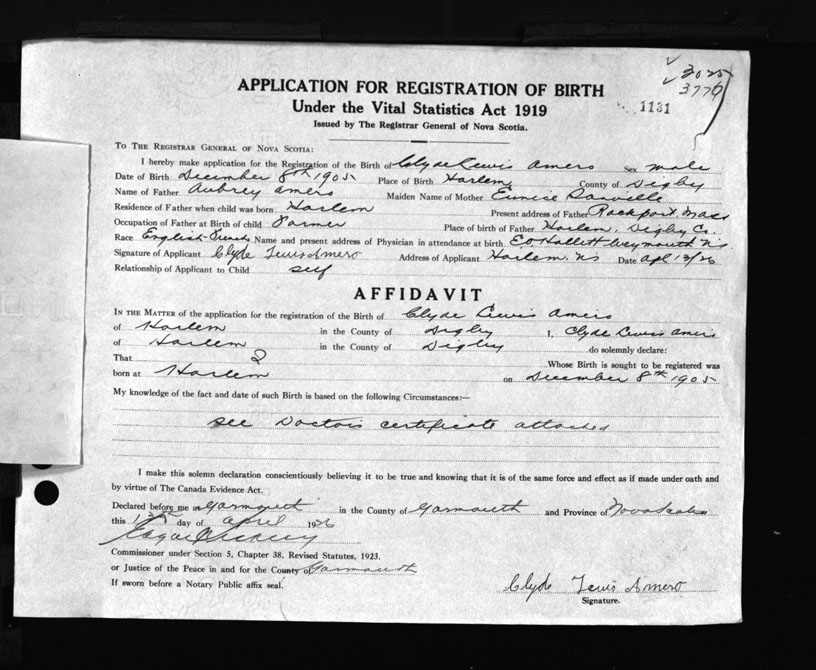 3025
3776
APPLICATION FOR REGISTRATION OF BIRTH
Under the Vital Statistics Act 1919
1131
Issued by The Registrar General of Nova Scotia.
TO THE REGISTRAR GENERAL OF NOVA SCOTIA:
I hereby make application for the Registration of the Birth of Clyde Lewis Amero sex male
Date of Birth December 8th 1905 Place of Birth Harlem County of Digby
Name of Father Aubrey Amero Maiden Name of Mother Eunice
Residence of Father when child was born Harlem Present address of Father Rockport, Mass
Occupation of Father at Birth of child Farmer Place of birth of Father Harlem, Digby Co.
Race English-French Name and present address of Physician in attendance at birth E O Hallett Weymouth N.S.
Signature of Applicant Clyde Lewis Amero Address of Applicant Harlem, N S Date Apl 13/26
Relationship of Applicant to Child self
AFFIDAVIT
IN THE MATTER of the application for the registration of the Birth of Clyde Lewis Amero
of Harlem in the County of Digby I, Clyde Lewis Amero
of Harlem in the County of Digby do solemnly declare:
That I Whose Birth is sought to be registered was
born at Harlem on December 8th 1905
My knowledge of the fact and date of such Birth is based on the following Circumstances:—
see Doctors certificate attached
I make this solemn declaration conscientiously believing it to be true and knowing that it is of the same force and effect as if made under oath and
by virtue of The Canada Evidence Act.
Declared before me at Yarmouth in the County of Yarmouth and Province of Nova Scotia
this day of April 1926
Commissioner under Section 5, Chapter 38, Revised Statutes, 1923.
or Justice of the Peace in and for the County of Yarmouth
If sworn before a Notary Public affix seal.
Clyde Lewis Amero
Signature.